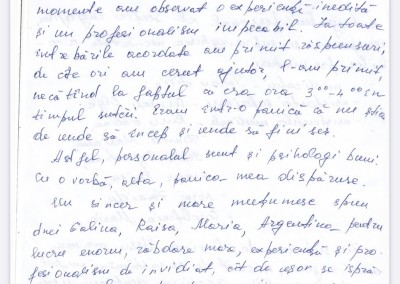 momente am observat o experiență inedită
și un profesionalism impecabil. La toate
întrebările acordate am primit răspunsuri,
de câte ori am cerut ajutor, l-am primit,
necătînd la faptul că era ora 3⁰⁰-4⁰⁰ în
timpul nopții. Eram într-o panică că nu știa
de unde să încep și unde să finisez.
Astfel, personalul sunt și psihologi buni.
Cu o vorbă, alta, panica mea dispăruse.
Un sincer și mare mulțumesc spun
dnei Galina, Raisa, Maria, Argentina pentru
lucru enorm, răbdare mare, experiență și pro-
fesionalism de invidiat, cît de ușor se ispră